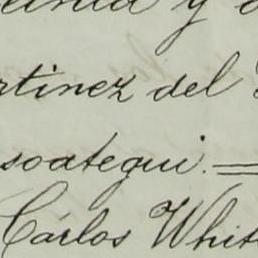 y
rtinez del
soategui. =
Carlos Whit